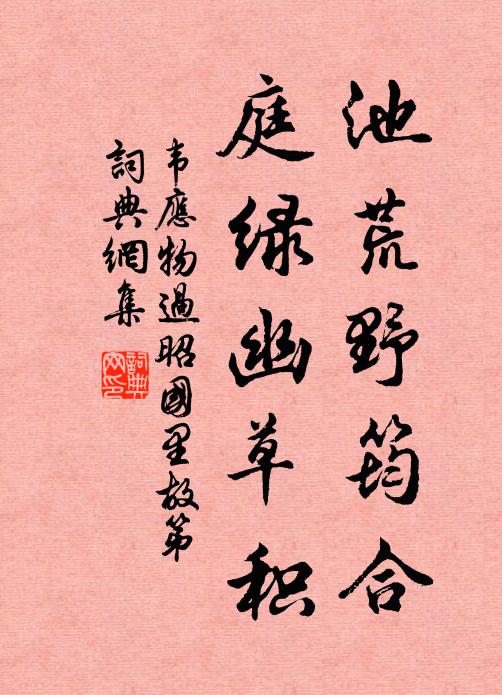 池荒野筠合
庭绿幽草积
韦應物過昭國里故第
詞典網集
詞典網印